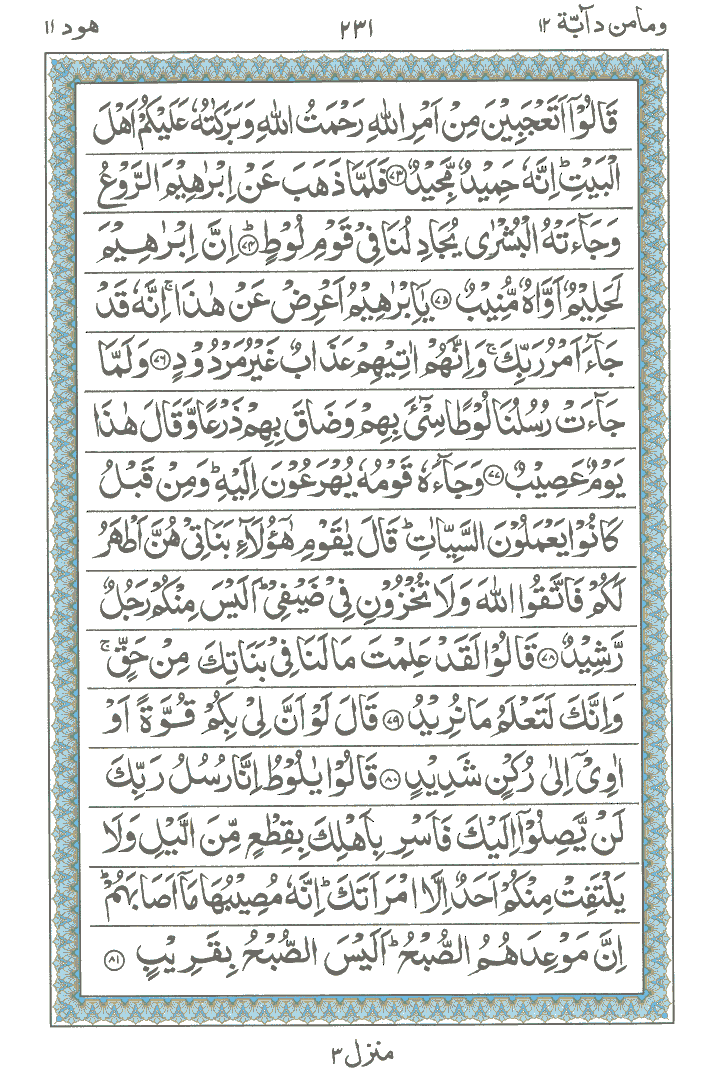 ومامن دآبّة ١٢ ٢٣١ هود ١١
قَالُوْٓا اَتَعْجَبِيْنَ مِنْ اَمْرِ اللّٰهِ رَحْمَتُ اللّٰهِ وَبَرَكٰتُهٗ عَلَيْكُمْ اَهْلَ
الْبَيْتِ ؕ اِنَّهٗ حَمِيْدٌ مَّجِيْدٌ ﴿۷۳﴾ فَلَمَّا ذَهَبَ عَنْ اِبْرٰهِيْمَ الرَّوْعُ
وَجَآءَتْهُ الْبُشْرٰى يُجَادِلُنَا فِيْ قَوْمِ لُوْطٍ ؕ ﴿۷۴﴾ اِنَّ اِبْرٰهِيْمَ
لَحَلِيْمٌ اَوَّاهٌ مُّنِيْبٌ ﴿۷۵﴾ يٰۤاِبْرٰهِيْمُ اَعْرِضْ عَنْ هٰذَا ۚ اِنَّهٗ قَدْ
جَآءَ اَمْرُ رَبِّكَ ۚ وَاِنَّهُمْ اٰتِيْهِمْ عَذَابٌ غَيْرُ مَرْدُوْدٍ ﴿۷۶﴾ وَلَمَّا
جَآءَتْ رُسُلُنَا لُوْطًا سِيْٓءَ بِهِمْ وَضَاقَ بِهِمْ ذَرْعًا وَّقَالَ هٰذَا
يَوْمٌ عَصِيْبٌ ﴿۷۷﴾ وَجَآءَهٗ قَوْمُهٗ يُهْرَعُوْنَ اِلَيْهِ ؕ وَمِنْ قَبْلُ
كَانُوْا يَعْمَلُوْنَ السَّيِّاٰتِ ؕ قَالَ يٰقَوْمِ هٰٓؤُلَآءِ بَنَاتِيْ هُنَّ اَطْهَرُ
لَكُمْ فَاتَّقُوا اللّٰهَ وَلَا تُخْزُوْنِ فِيْ ضَيْفِيْ ؕ اَلَيْسَ مِنْكُمْ رَجُلٌ
رَّشِيْدٌ ﴿۷۸﴾ قَالُوْا لَقَدْ عَلِمْتَ مَا لَنَا فِيْ بَنَاتِكَ مِنْ حَقٍّ ۚ
وَاِنَّكَ لَتَعْلَمُ مَا نُرِيْدُ ﴿۷۹﴾ قَالَ لَوْ اَنَّ لِيْ بِكُمْ قُوَّةً اَوْ
اٰوِيْٓ اِلٰى رُكْنٍ شَدِيْدٍ ﴿۸۰﴾ قَالُوْا يٰلُوْطُ اِنَّا رُسُلُ رَبِّكَ
لَنْ يَّصِلُوْٓا اِلَيْكَ فَاَسْرِ بِاَهْلِكَ بِقِطْعٍ مِّنَ الَّيْلِ وَلَا
يَلْتَفِتْ مِنْكُمْ اَحَدٌ اِلَّا امْرَاَتَكَ ؕ اِنَّهٗ مُصِيْبُهَا مَآ اَصَابَهُمْ ؕ
اِنَّ مَوْعِدَهُمُ الصُّبْحُ ؕ اَلَيْسَ الصُّبْحُ بِقَرِيْبٍ ﴿۸۱﴾
منزل ٣